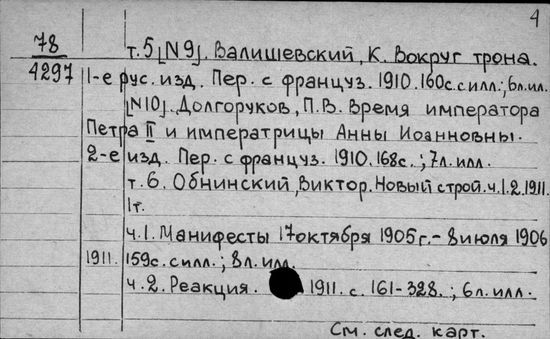 4
78
4297
т.5[N9]. Валишевский, К. Вокруг трона.
11-е рус. изд. Пер. с француз. 1910. 160с. с илл.; 6л. ил.
[N10]. Долгоруков, П.В. Время императора
Петра II и императрицы Анны Иоанновны.
2-е изд. Пер. с француз. 1910. 168с.; 7л. илл.
т. 6. Обнинский, Виктор. Новый строй. ч.1.2. 1911.
1т.
ч.1. Манифесты 17 октября 1905 г. - 8 июля 1906
1911. 159с. с илл.; 8л. илл.
ч.2. Реакция. 1911. с. 161-328.; 6л. илл.
См. след. карт.